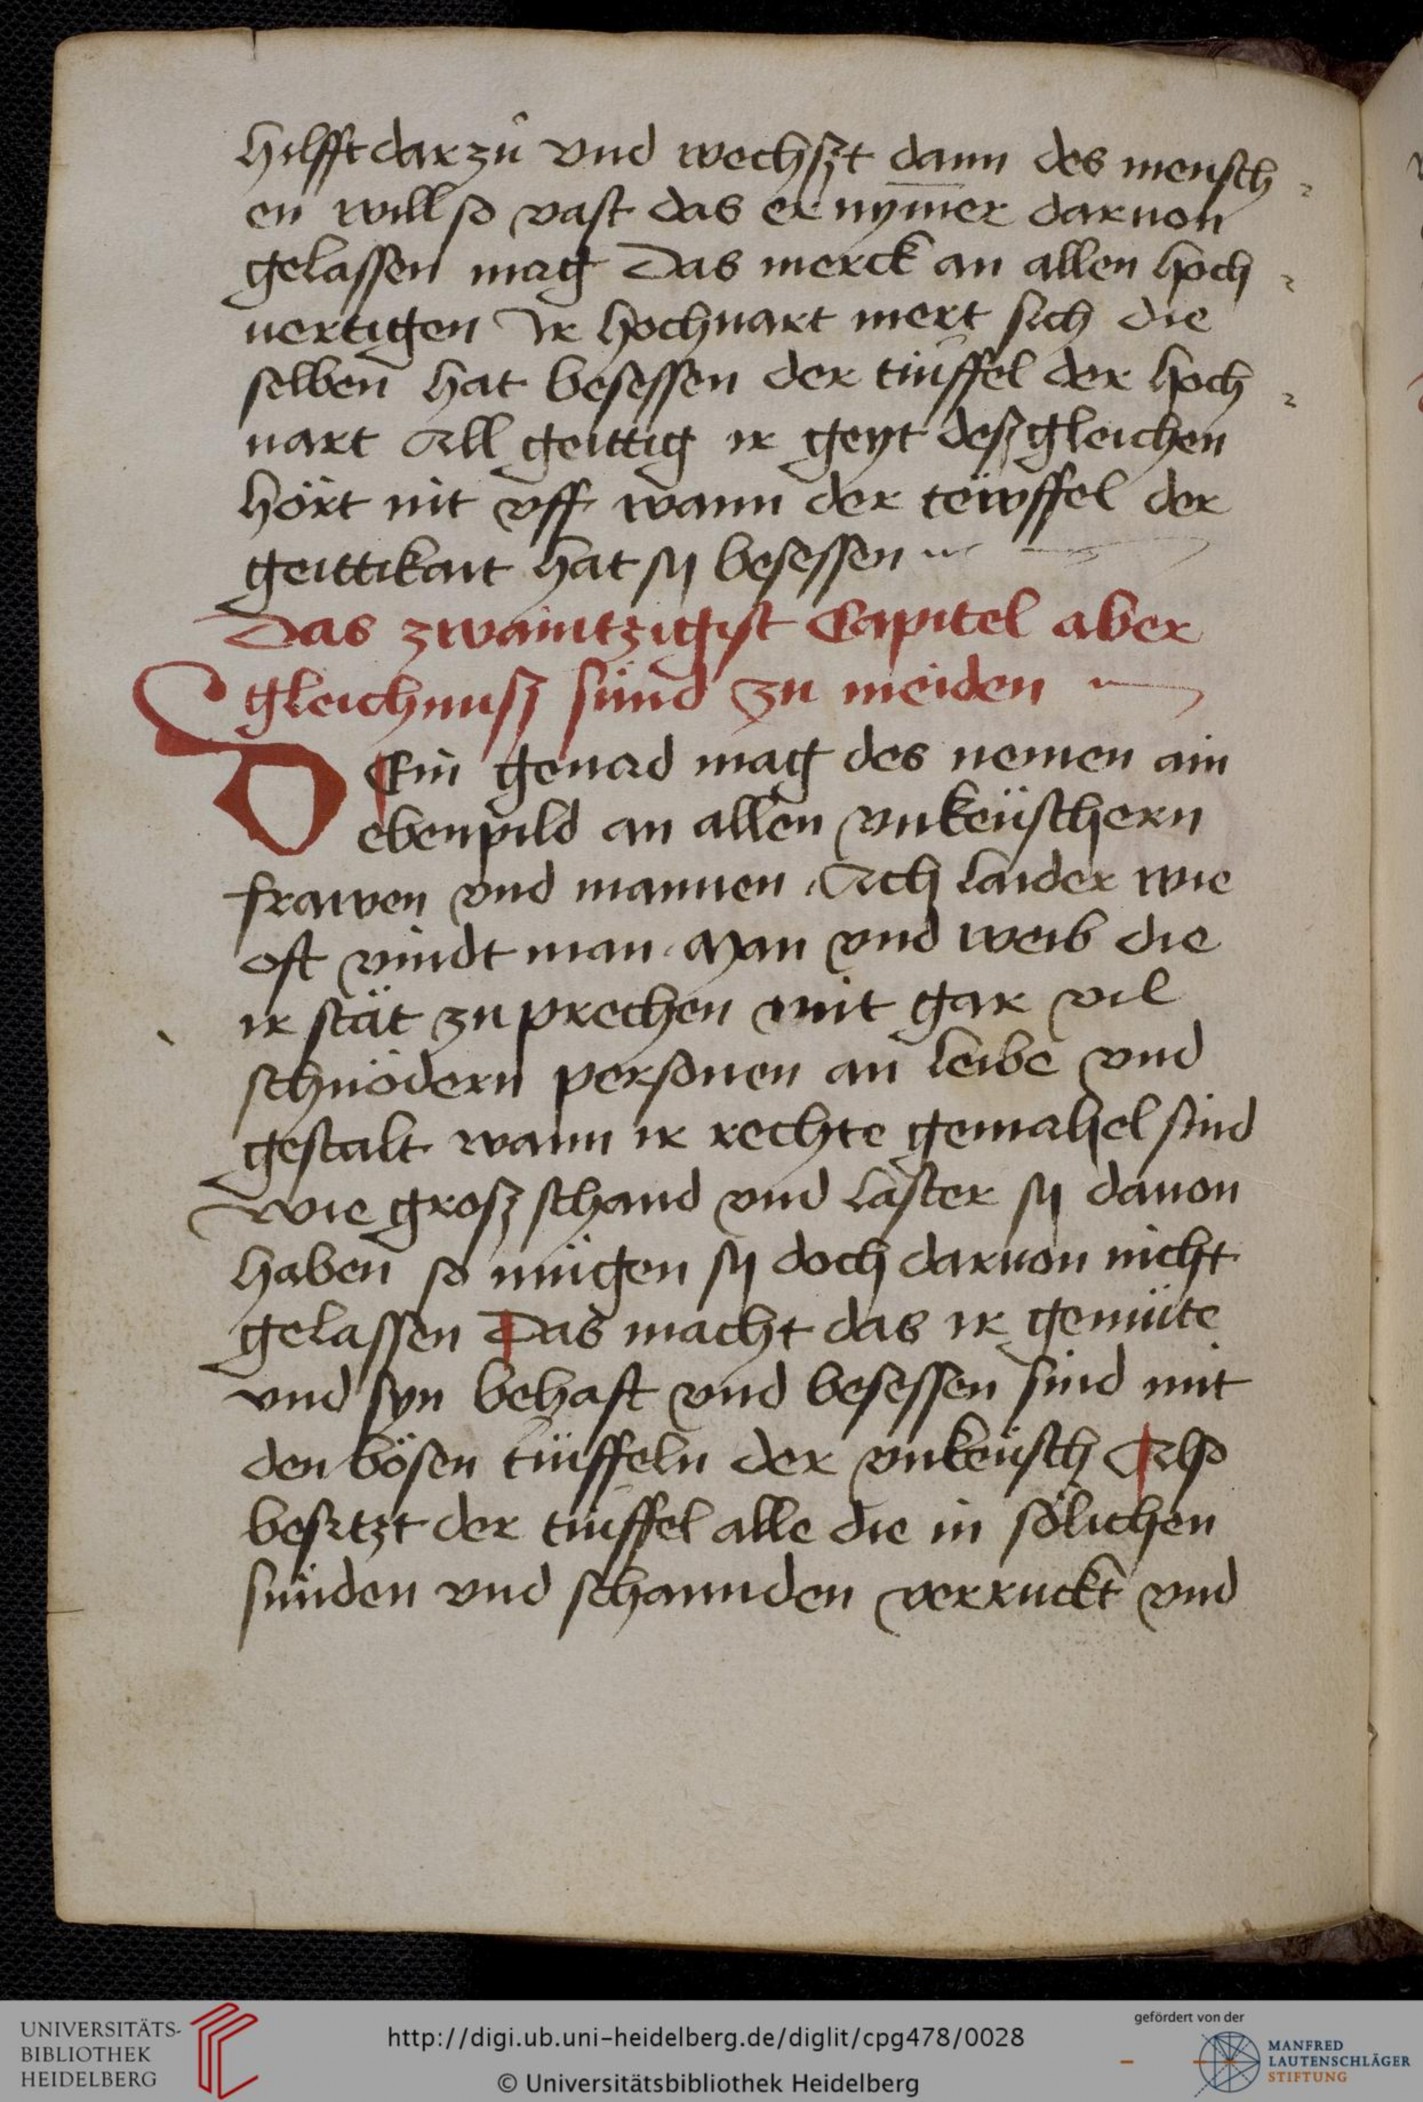 hilfft darzů vnd wechszt dann des mensch
en will so vast das er nym̄er daruon
gelassen mag Das merck an allen hoch
uertigen Ir hochuart mert sich die
selben hat besessen der tiuffel der hoch
uart All geittig ir geyt deszgleichen
hört nit vff wann der tëwffel der
geittikait hat sÿ besessen
Das zwaintzigist Capitel aber
gleichnusz sünd zu meiden
DEin genad mag des nemen ain
ebenpild an allen vnkeüschern
frawen vnd mannen Ach laider wie
oft vindt man Man vnd weib die
ir stät zuprechen mit gar vil
schnödern personen an leibe vnd
gestalt wann ir rechte gemahel sind
Wie grosz schand vnd laster sÿ dauon
haben so mügen sÿ doch daruon nicht
gelassen Das macht das ir gemüte
vnd syn behaft vnd besessen sind mit
den bösen tüffeln der vnkeüsch Also
besitzt der tiuffel alle die in sölichen
sünden vnd schannden verruckt vnd
UNIVERSITÄTS-
BIBLIOTHEK
HEIDELBERG
http://digi.ub.uni-heidelberg.de/diglit/cpg478/0028
© Universitätsbibliothek Heidelberg
gefördert von der
MANFRED
LAUTENSCHLÄGER
STIFTUNG